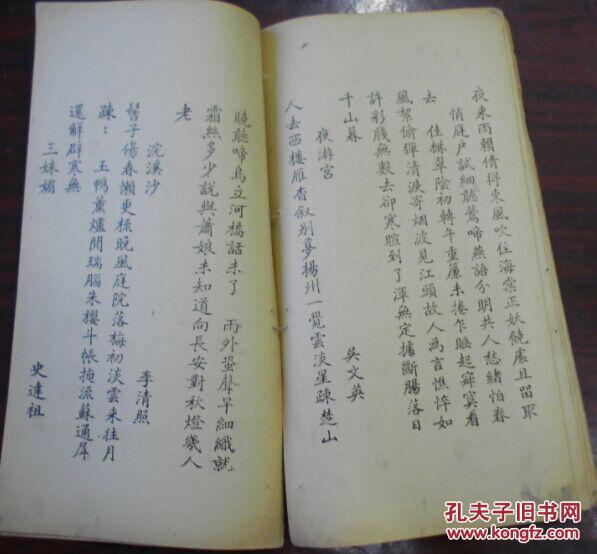 夜来雨賴倩得東風吹住海棠正妖饒處且畱取
悄庭户試細聽鶯啼燕語分明共人愁緒怕春
去　佳樹翠陰初轉午重簾未捲乍睡起寂寞看
風絮偷彈清淚寄烟波見江頭故人為言憔悴如
許彩牋無數去卻寒暄到了渾無定據斷腸落日
千山暮
夜游宮　吳文英
人去西樓雁杳叙别夢揚州一覺雲淡星疎楚山
曉聽啼烏立河橋話未了　雨外蛩聲早細織就
霜絲多少説與蕭娘未知道向長安對秋燈幾人
老
浣溪沙　李清照
髻子傷春懶更梳晚風庭院落梅初淡雲来往月
疎：　玉鴨薰爐閒瑞腦朱櫻斗帳掩流蘇通犀
還解辟寒無
三姝媚　史達祖
孔夫子旧书网
www.kongfz.com